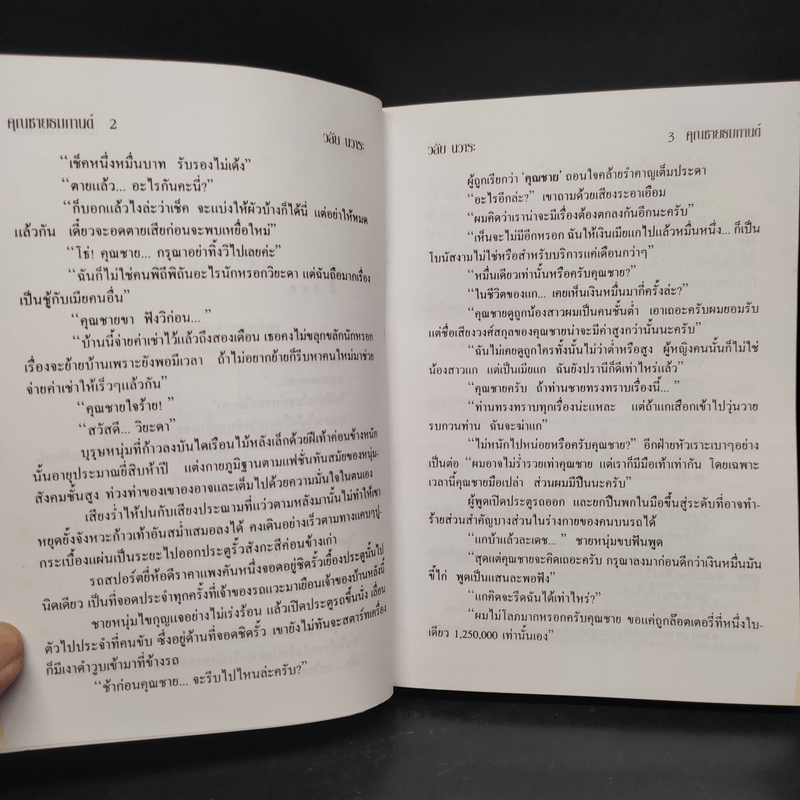 คุณชายธมกานต์ 2
วลัย นวาระ
“เช็คหนึ่งหมื่นบาท รับรองไม่เด้ง”
“ตายแล้ว... อะไรกันคะนี่?”
“ก็บอกแล้วไงล่ะว่าเช็ค จะแบ่งให้ผัวบ้างก็ได้นี่ แต่อย่าให้หมด
แล้วกัน เดี๋ยวจะอดตายเสียก่อนจะพบเหยื่อใหม่”
“โธ่! คุณชาย... กรุณาอย่าทิ้งวิไปเลยค่ะ”
“ฉันก็ไม่ใช่คนพิถีพิถันอะไรนักหรอกวิยะดา แต่ฉันถือมากเรื่อง
เป็นชู้กับเมียคนอื่น”
“คุณชายขา ฟังวิก่อน...”
“บ้านนี้จ่ายค่าเช่าไว้แล้วถึงสองเดือน เธอคงไม่ขลุกขลักนักหรอก
เรื่องจะย้ายบ้านเพราะยังพอมีเวลา ถ้าไม่อยากย้ายก็รีบหาคนใหม่มาช่วย
จ่ายค่าเช่าให้เร็วๆแล้วกัน”
“คุณชายใจร้าย!”
“สวัสดี... วิยะดา”
บุรุษหนุ่มที่ก้าวลงบันไดเรือนไม้หลังเล็กด้วยฝีเท้าค่อนข้างหนัก
นั้นอายุประมาณยี่สิบห้าปี แต่งกายภูมิฐานตามแฟชั่นทันสมัยของหนุ่ม-
สังคมชั้นสูง ท่วงท่าของเขาองอาจและเต็มไปด้วยความมั่นใจในตนเอง
เสียงร่ำไห้ปนกับเสียงประณามที่แว่วตามหลังมานั้นไม่ทำให้เขา
หยุดยั้งจังหวะก้าวเท้าอันสม่ำเสมอลงได้ คงเดินอย่างเร็วตามทางแคบๆปู-
กระเบื้องแผ่นเป็นระยะไปออกประตูรั้วสังกะสีค่อนข้างเก่า
รถสปอร์ตยี่ห้อดีราคาแพงคันหนึ่งจอดอยู่ชิดรั้วเยื้องประตูนั้นไป
นิดเดียว เป็นที่จอดประจำทุกครั้งที่เจ้าของรถแวะมาเยือนเจ้าของบ้านหลังนี้
ชายหนุ่มไขกุญแจอย่างไม่เร่งร้อน แล้วเปิดประตูรถขึ้นนั่ง เลื่อน
ตัวไปประจำที่คนขับ ซึ่งอยู่ด้านที่จอดชิดรั้ว เขายังไม่ทันจะสตาร์ทเครื่อง
ก็มีเงาดำวูบเข้ามาที่ข้างรถ
“ช้าก่อนคุณชาย... จะรีบไปไหนล่ะครับ?”
วลัย นวาระ
3 คุณชายธมกานต์
ผู้ถูกเรียกว่า ‘คุณชาย’ ถอนใจคล้ายรำคาญเต็มประดา
“อะไรอีกล่ะ?” เขาถามด้วยเสียงระอาเอือม
“ผมคิดว่าเราน่าจะมีเรื่องต้องตกลงกันอีกนะครับ”
“เห็นจะไม่มีอีกหรอก ฉันให้เงินเมียแกไปแล้วหมื่นหนึ่ง... ก็เป็น
โบนัสงามไม่ใช่หรือสำหรับบริการแค่เดือนกว่าๆ”
“หมื่นเดียวเท่านั้นหรือครับคุณชาย?”
“ในชีวิตของแก... เคยเห็นเงินหมื่นมากี่ครั้งล่ะ?”
“คุณชายดูถูกน้องสาวผมเป็นคนชั้นต่ำ เอาเถอะครับผมยอมรับ
แต่ชื่อเสียงวงศ์สกุลของคุณชายน่าจะมีค่าสูงกว่านั้นนะครับ”
“ฉันไม่เคยดูถูกใครทั้งนั้นไม่ว่าต่ำหรือสูง ผู้หญิงคนนั้นก็ไม่ใช่
น้องสาวแก แต่เป็นเมียแก ฉันยังปรานีก็ดีเท่าไหร่แล้ว”
“คุณชายครับ ถ้าท่านชายทรงทราบเรื่องนี้...”
“ท่านทรงทราบทุกเรื่องน่ะแหละ แต่ถ้าแกเสือกเข้าไปวุ่นวาย
รบกวนท่าน ฉันจะฆ่าแก”
“ไม่หนักไปหน่อยหรือครับคุณชาย?” อีกฝ่ายหัวเราะเบาๆอย่าง
เป็นต่อ “ผมอาจไม่ร่ำรวยเท่าคุณชาย แต่เราก็มีมือเท้าเท่ากัน โดยเฉพาะ
เวลานี้คุณชายมือเปล่า ส่วนผมมีปืนนะครับ”
ผู้พูดเปิดประตูรถออก และยกปืนพกในมือขึ้นสู่ระดับที่อาจทำ-
ร้ายส่วนสำคัญบางส่วนในร่างกายของคนบนรถได้
“แกบ้าแล้วละเดช...” ชายหนุ่มขบฟันพูด
“สุดแต่คุณชายจะคิดเถอะครับ กรุณาลงมาก่อนดีกว่าเงินหมื่นมัน
ขี้ไก่ พูดเป็นแสนละพอฟัง”
“แกคิดจะรีดฉันได้เท่าไหร่?”
“ผมไม่โลภมากหรอกครับคุณชาย ขอแค่ถูกล๊อตเตอรี่ที่หนึ่งใบ-
เดียว 1,250,000 เท่านั้นเอง”